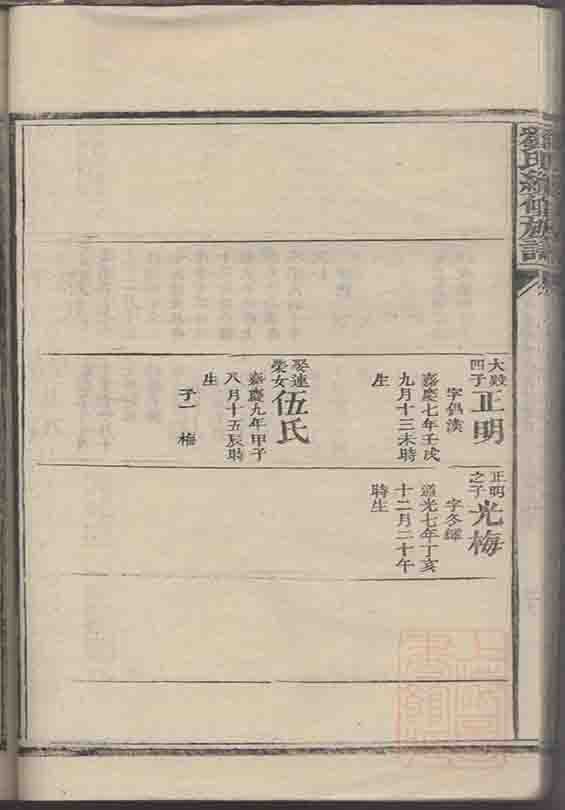 劉氏續修族譜
大毅
四子
正明
字倡漢
嘉慶七年壬戌
九月十三未時
生
娶連
榮女
伍氏
嘉慶九年甲子
八月十五辰時
生
子一 梅
正明
之子
光梅
字冬輝
道光七年丁亥
十二月二十午
時生